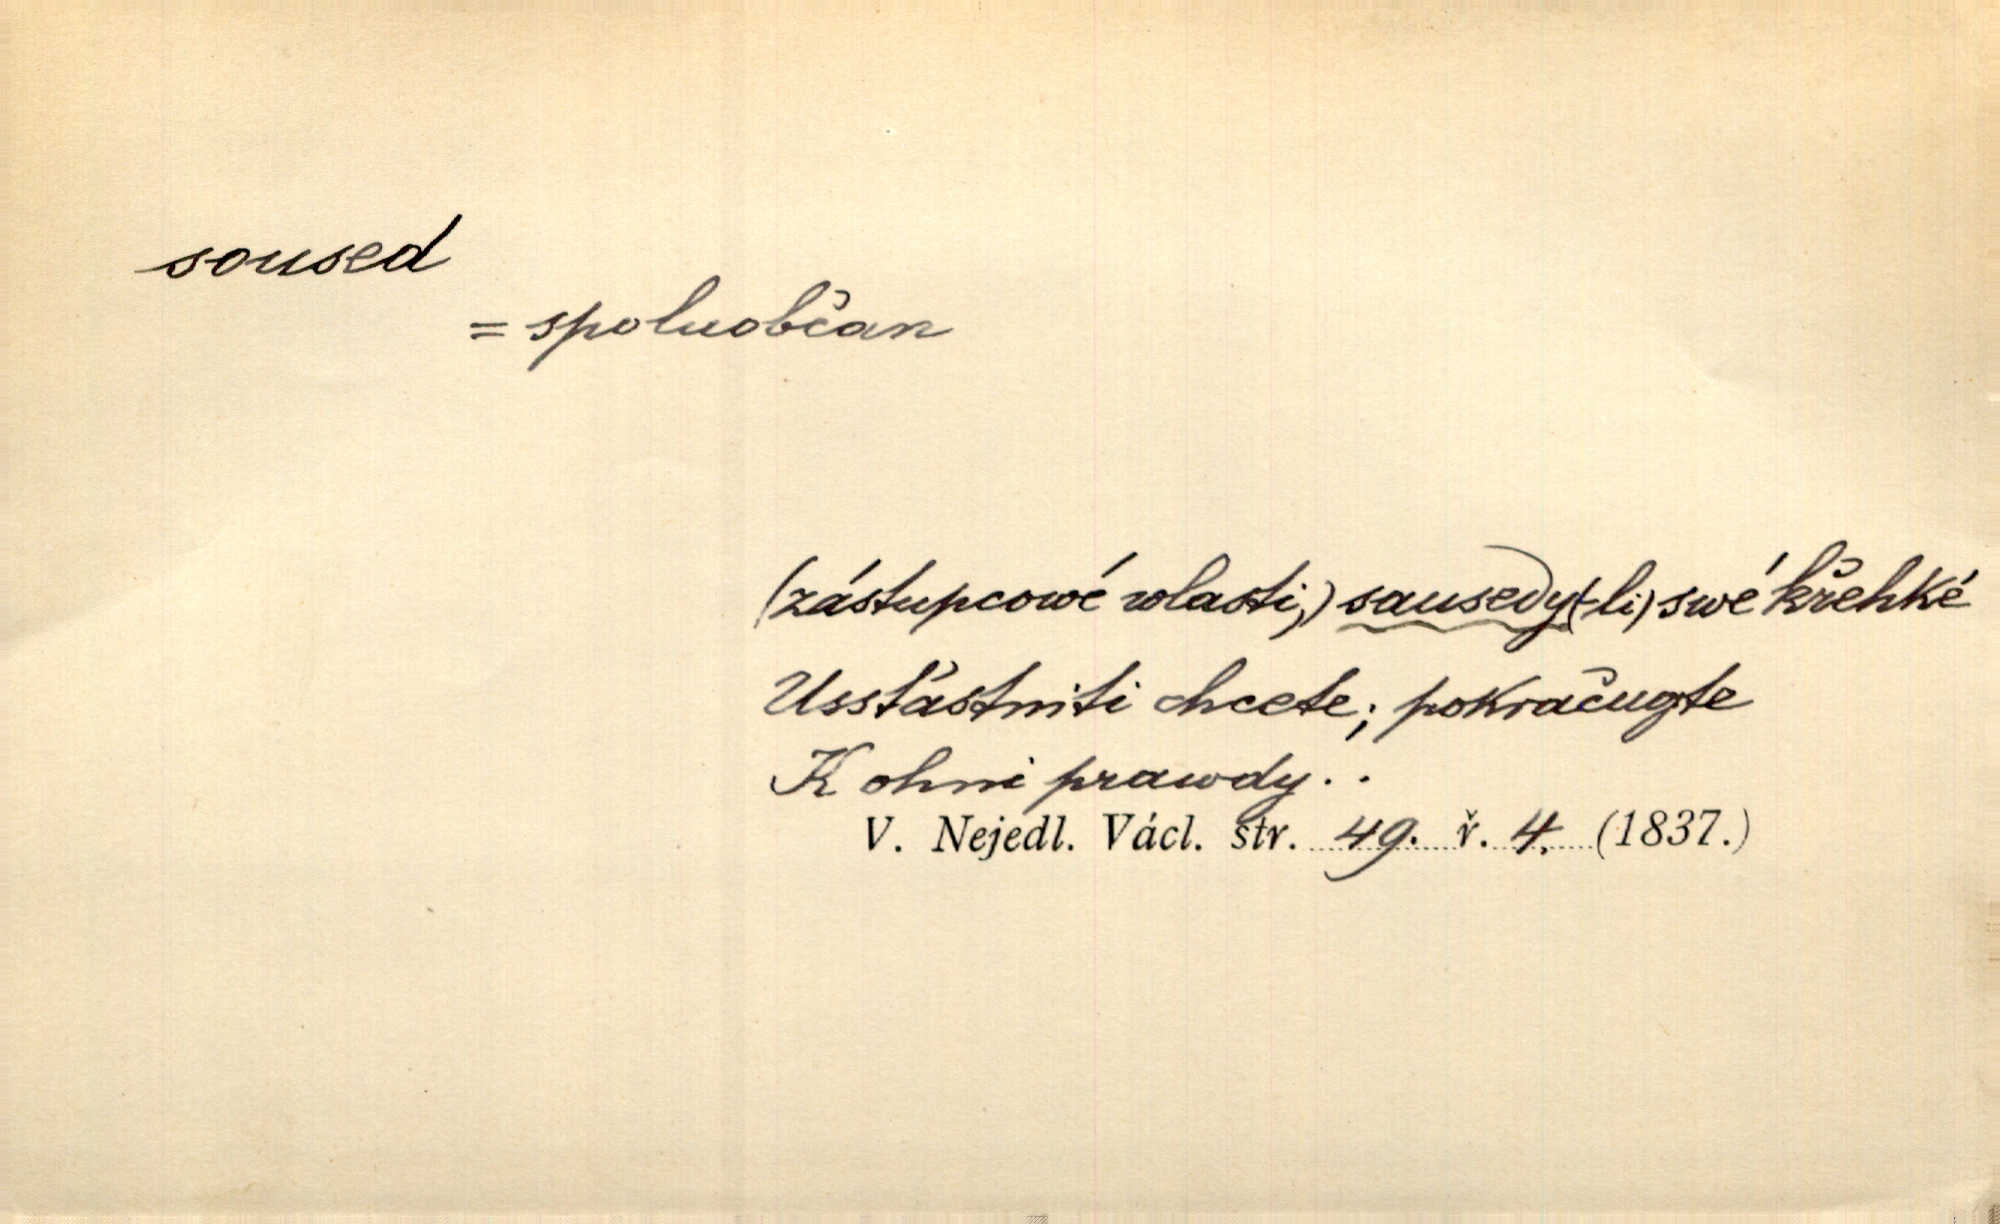 soused
= spoluobčan
(zástupcowé wlasti,) sausedy(-li) swé křehké
Usstástniti chcete; pokračugte
K ohni prawdy..
V. Nejedl. Václ. str. 49. ř. 4. (1837.)